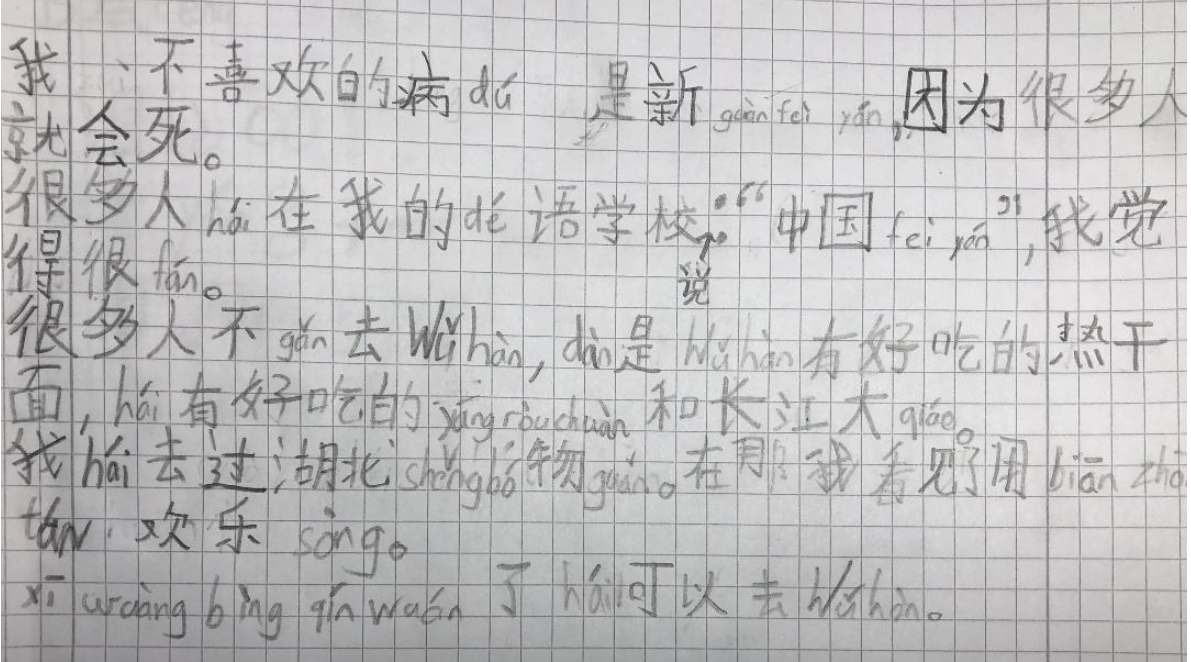 我不喜欢的病dú 是新guàn fèi yán,因为很多人
就会死。
很多人hái在我的dé语学校说:“中国fei yán”,我觉
得很fán。
很多人不gǎn去Wǔhàn, dàn是Wǔhàn有好吃的热干
面, hái有好吃的yáng ròu chuàn和长江大qiáo。
我hái去过湖北shěng bó物guǎn。在那我看见了用biān zhō
tán 欢乐sòng。
xī wàng bìng qín wuán了hái可以去Wǔhàn。